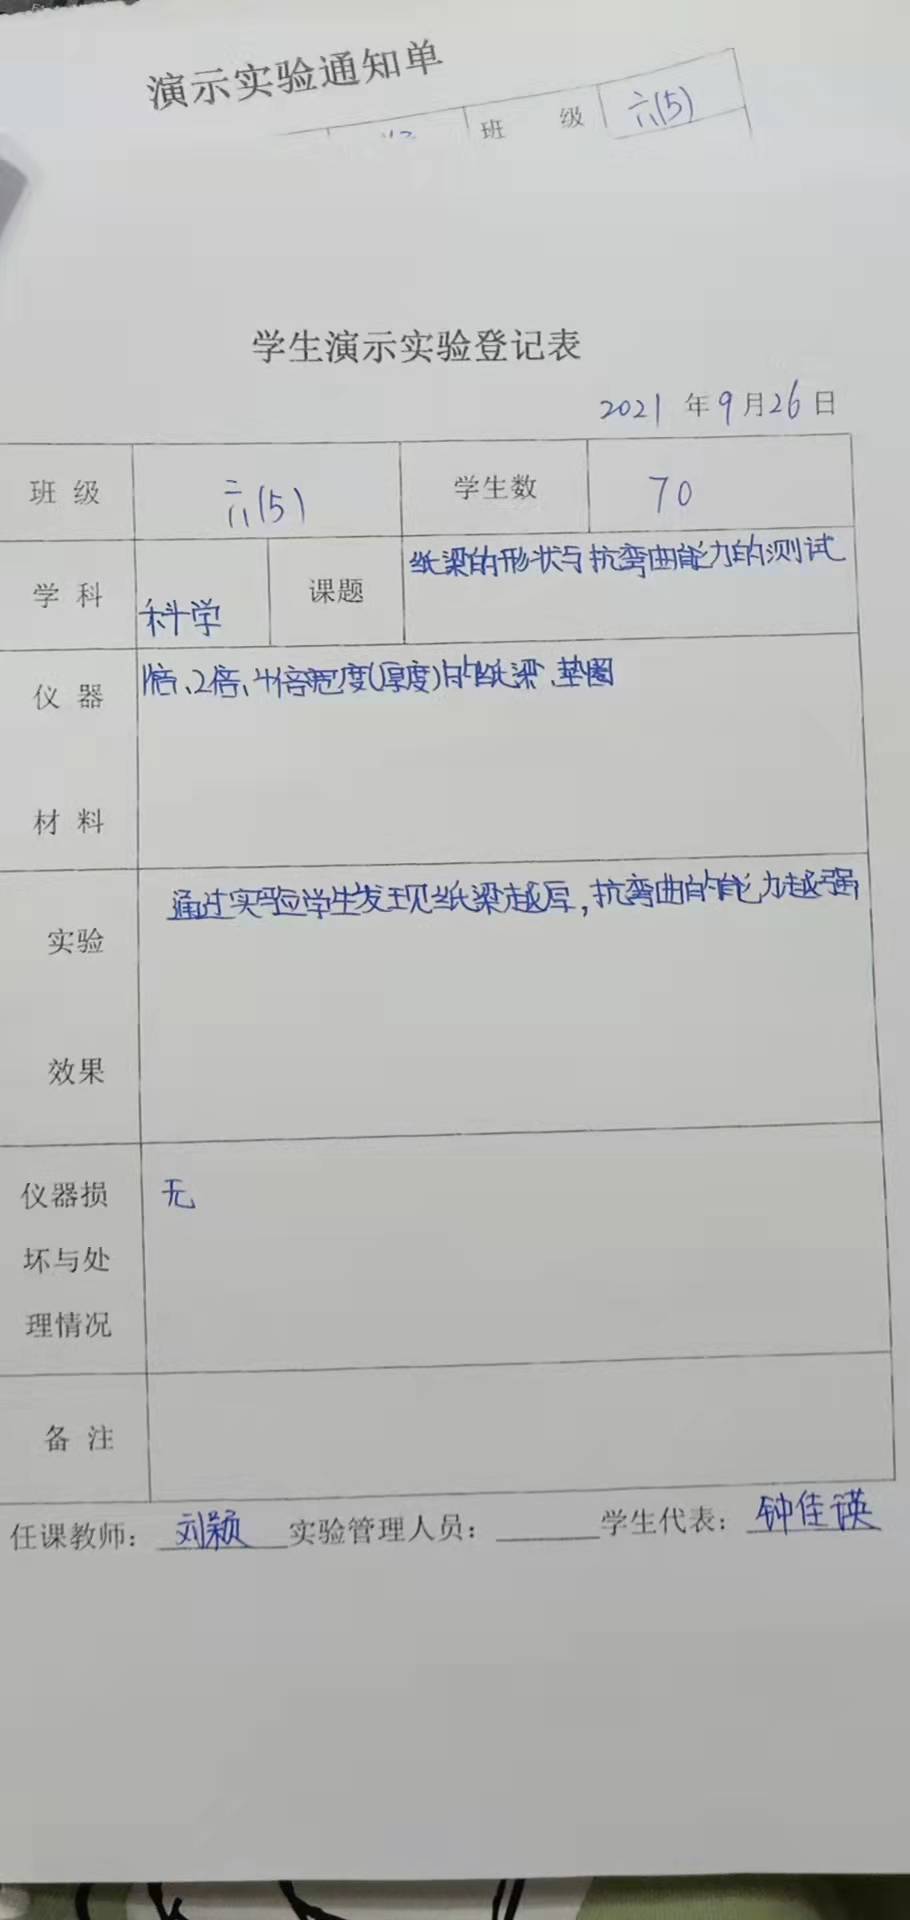 演示实验通知单
班 级 六(5)
学生演示实验登记表
2021 年 9 月 26 日
班 级 六(5) 学生数 70
学 科 科学 课题 纸梁的形状与抗弯曲能力的测试
仪 器 1倍、2倍、4倍宽度(厚度)的纸梁、垫圈
材 料
实验 通过实验学生发现纸梁越厚,抗弯曲的能力越强
效果
仪器损 无
坏与处
理情况
备 注
任课教师: 刘颖 实验管理人员: 学生代表: 钟佳